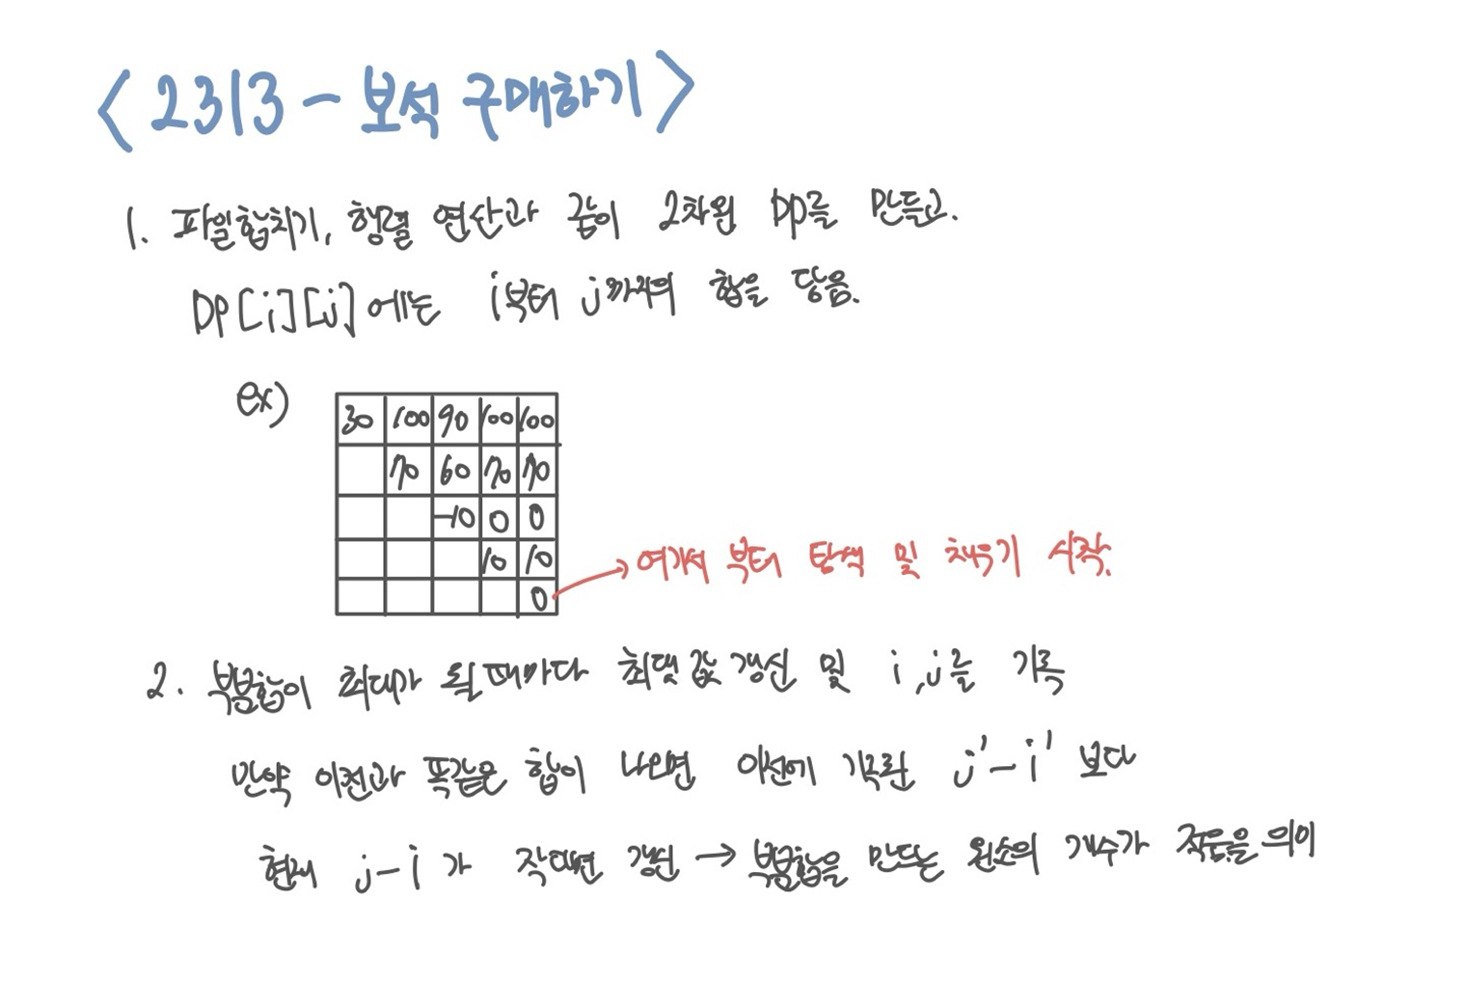 <2313 - 보석 구매하기>
1. 파일합치기, 행렬 연산과 같이 2차원 DP를 만들고.
DP[i][j]에는 i부터 j까지의 합을 담음.
ex)
30 100 90 100 100
70 60 70 70
-10 0 0
10 10
0
여기서 부터 탐색 및 채우기 시작.
2. 부분합이 최대가 될때마다 최댓값 갱신 및 i, j를 기록
만약 이전과 똑같은 합이 나오면 이전에 기록한 j'-i' 보다
현재 j-i가 작다면 갱신 → 부분합을 만드는 원소의 개수가 적음을 의미